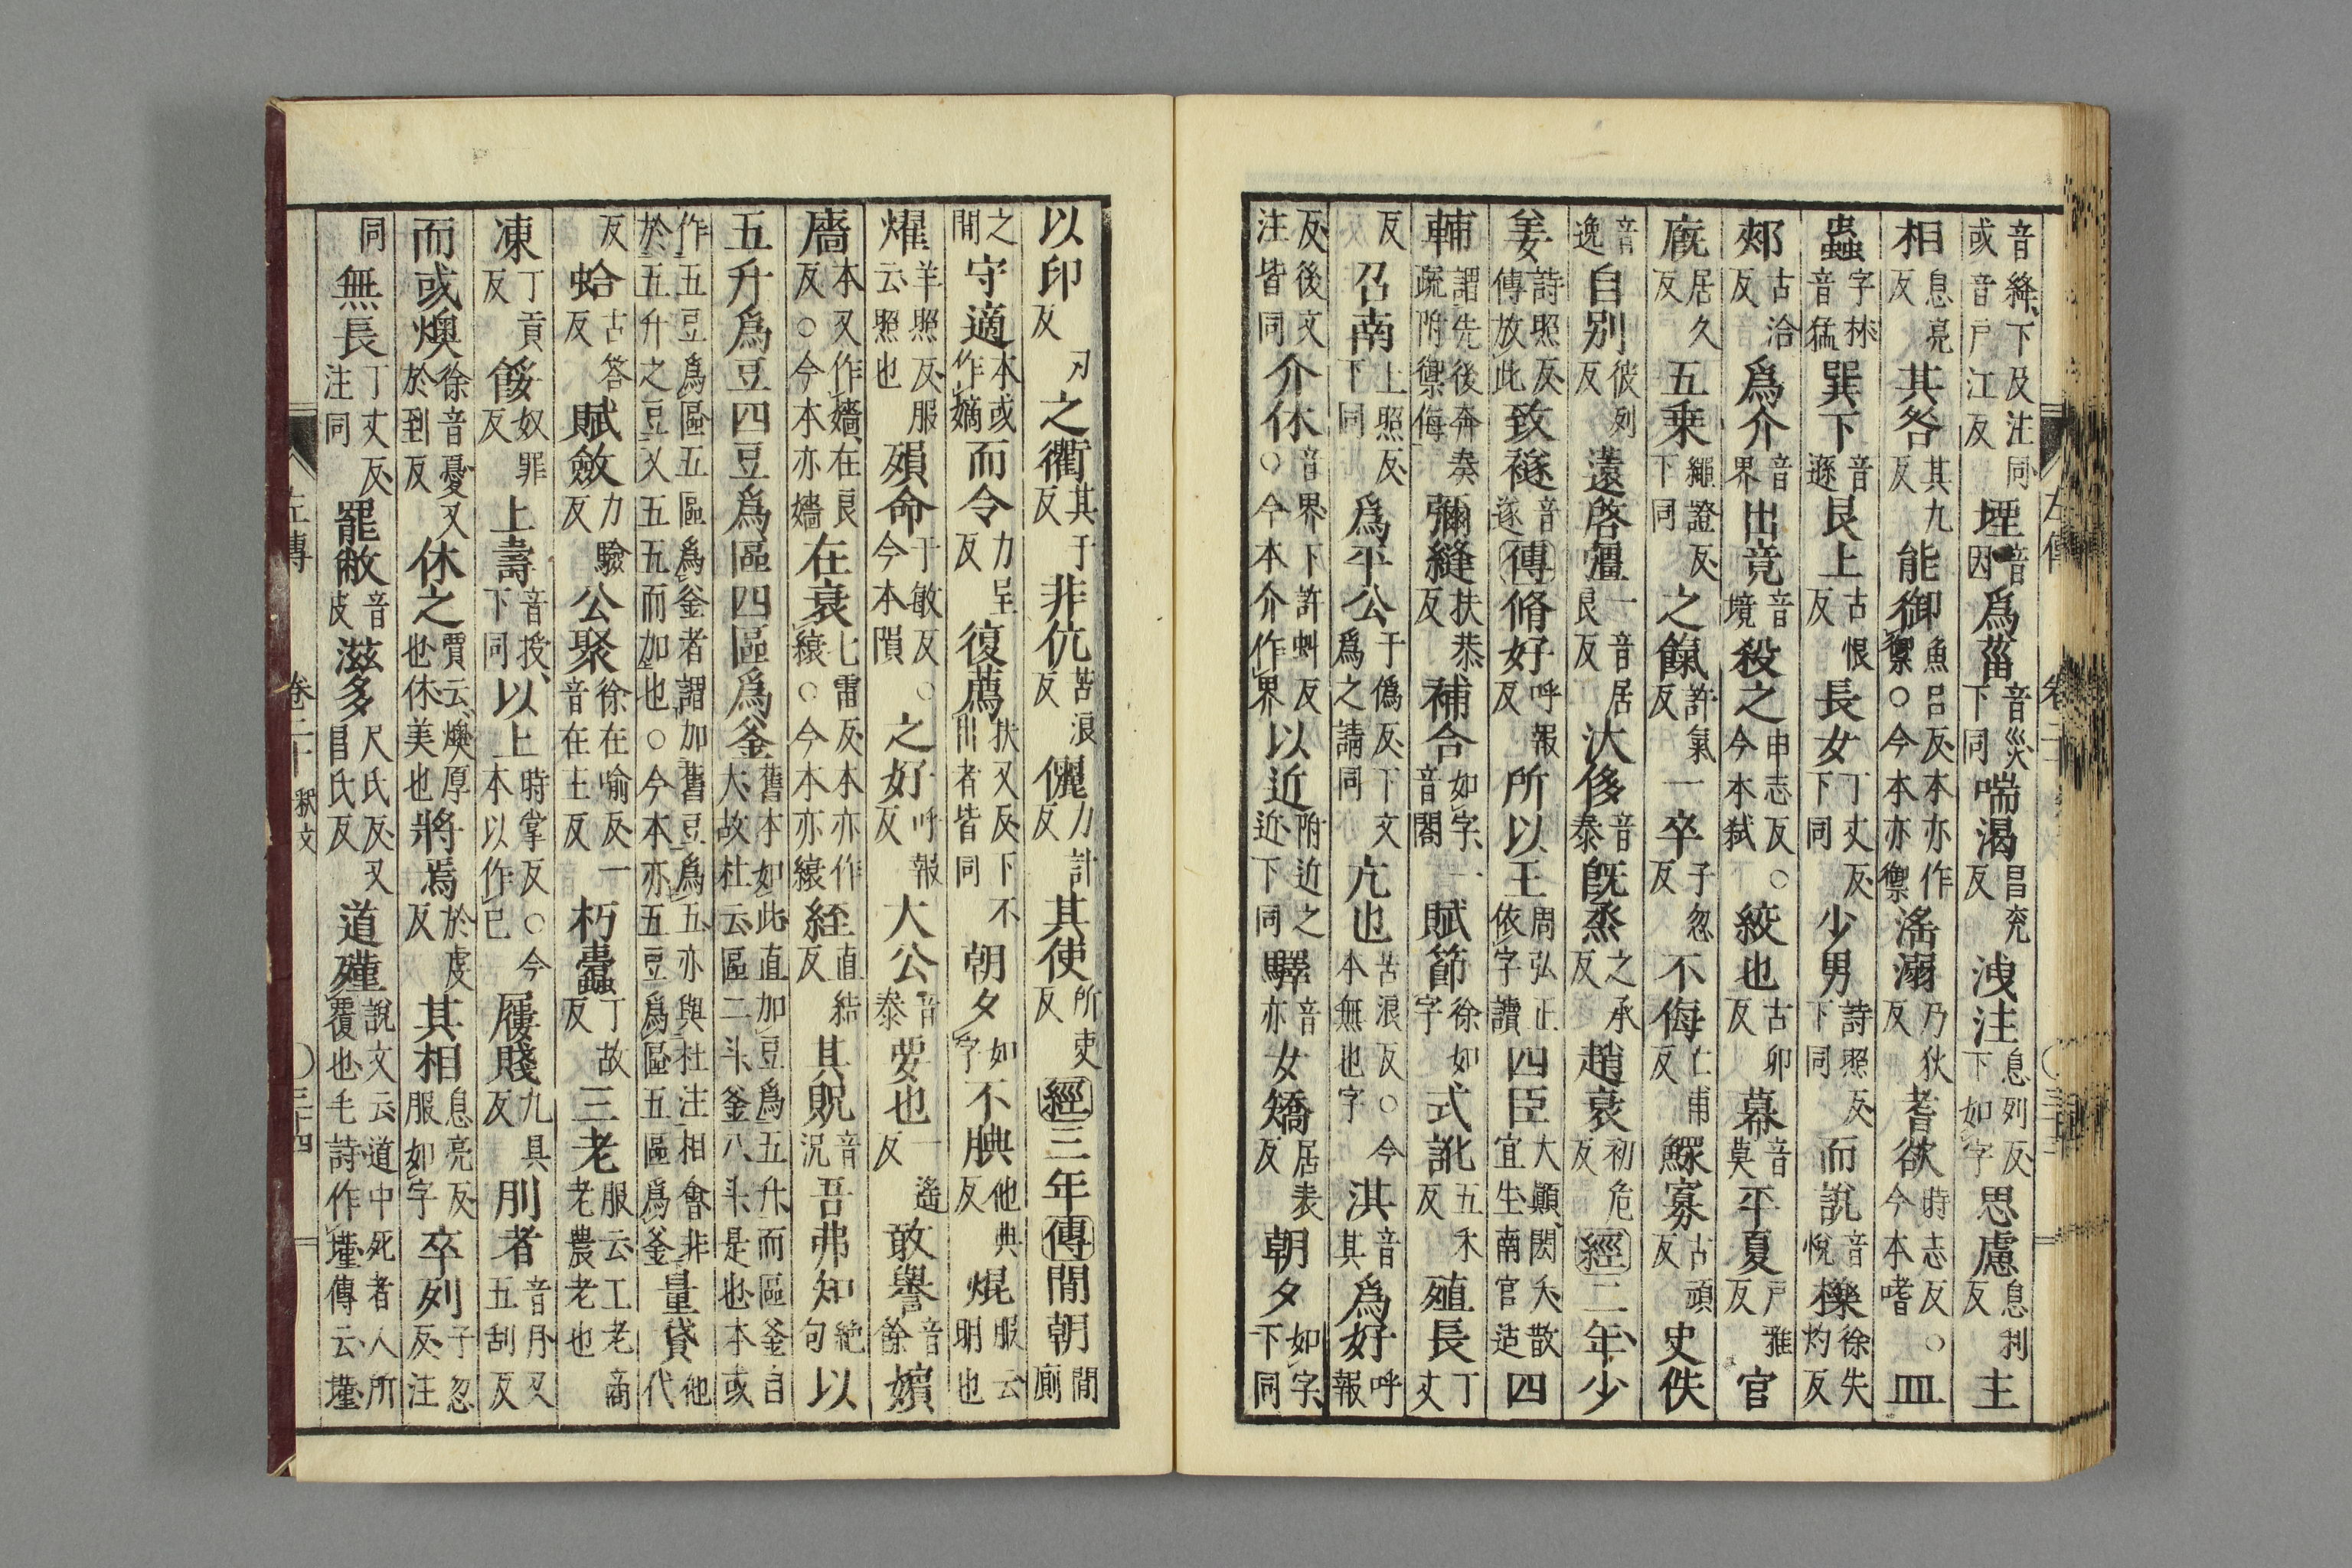 音絳下及注同或音戶江反堙音因爲菑音災下同喘渴昌兖反洩注息列反下如字思慮息利反主
相息亮反其咎其九反能御魚呂反本亦作禦○今本亦禦滛溺乃狄反耆欲時志反○今本嗜皿
蟲字林音猛巽下音遜艮上古恨反長女丁丈反下同少男詩照反下同而說音悅櫟徐失灼反
郟古洽反爲介音界出竟音境殺之申志反○今本弑絞也古卯反幕音莫平夏戶雅反官
廐居久反五乗繩證反下同之餼許氣反一卒子忽反不侮亡甫反鰥寡古頑反史佚
音逸自別彼列反薳啓彊一音居良反汏侈音泰旣烝之承反趙衰初危反經二年少
姜詩照反傳放此致襚音遂傳脩好呼報反所以王周弘正依字讀四臣大顚閎夭散宜生南宮适四
輔謂先後奔奏疏附禦侮彌縫扶恭反補合如字一音閤賦節徐如字式訛五禾反殖長丁丈
反召南上照反下同爲平公于僞反下文爲之請同亢也苦浪反○今本無也字淇音其爲好呼報
反後文注皆同介休音界下許虯反○今本介作界以近附近之近下同驛音亦女矯居表反朝夕如字下同
以印刃反之衢其于反非伉苦浪反儷力計反其使所吏反經三年傳閒朝閒廁
之閒守適本或作嫡而令力呈反復薦扶又反下不者皆同朝夕如字不腆他典反焜服云明也
燿羊照反服云照也殞命于敏反○今本隕之好呼報反大公音泰要也一遥反敢譽音餘嬪
廧本又作嬙在良反○今本亦嬙在衰七雷反本亦作縗○今本亦縗絰直結反其貺音況吾弗知絕句以
五升爲豆四豆爲區四區爲釜舊本如此直加豆爲五升而區釜自大故杜云區二斗釜八斗是也本或
作五豆爲區五區爲釜者謂加舊豆爲五亦與杜注相會非於五升之豆又五五而加也○今本亦五豆爲區五區爲釜量貸他代
反蛤古答反賦斂力驗反公聚徐在喻反一音在主反朽蠹丁故反三老服云工老商老農老也
凍丁貢反餒奴罪反上壽音授下同以上時掌反○今本以作已屨賤九具反刖者音月又五刮反
而或燠徐音憂又於到反休之賈云燠厚也休美也將焉於虔反其相息亮反服如字卒列子忽反注
同無長丁丈反注同罷敝音皮滋多尺氏反又昌氏反道殣說文云道中死者人所覆也毛詩作墐傳云墐
左傳 卷二十 釈文 三十四